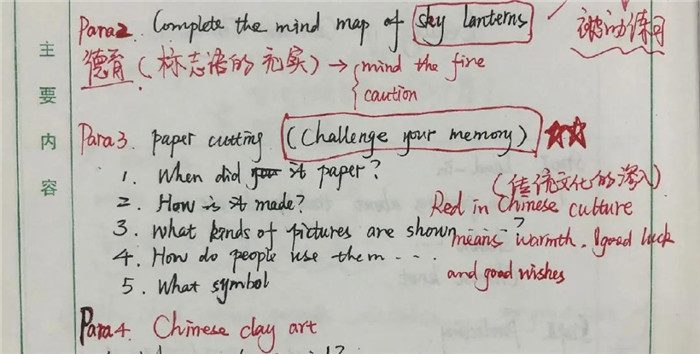 主要内容
Para2. Complete the mind map of sky lanterns
被动练习
德育(标志语的充实)→ mind the fire
caution
Para3. paper cutting (Challenge your memory)
1. When did it paper?
(传统文化的深入)
2. How is it made?
Red in Chinese culture
3. What kinds of pictures are shown ...?
means warmth. good luck
4. How do people use them ....
and good wishes
5. What symbol
Para4. Chinese clay art